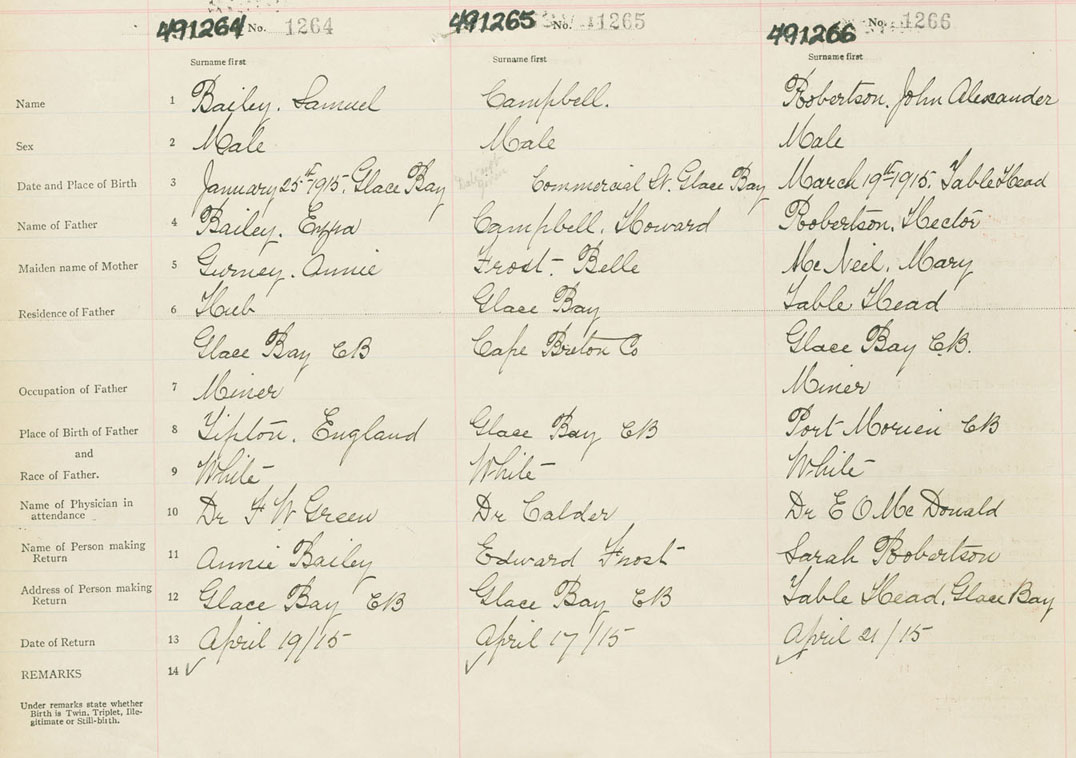 491264 No. 1264 491265 No. 1265 491266 No. 1266
Surname first Surname first Surname first
Name 1 Bailey. Samuel Campbell. Robertson, John Alexander
Sex 2 Male Male Male
Date and Place of Birth 3 January 25th 1915. Glace Bay Commercial St. Glace Bay March 19th 1915. Table Head
Name of Father 4 Bailey. Ezra Campbell. Howard Robertson, Hector
Maiden name of Mother 5 Gurney. Annie Frost - Belle McNeil. Mary
Residence of Father 6 Hub Glace Bay Table Head
Glace Bay CB Cape Breton Co Glace Bay C.B.
Occupation of Father 7 Miner Miner
Place of Birth of Father 8 Tipton. England Glace Bay CB Port Morien CB
and
Race of Father. 9 White White White
Name of Physician in
attendance 10 Dr F W Green Dr Calder Dr E O Mc Donald
Name of Person making
Return 11 Annie Bailey Edward Frost Sarah Robertson
Address of Person making
Return 12 Glace Bay CB Glace Bay CB Table Head. Glace Bay
Date of Return 13 April 19/15 April 17/15 April 21/15
REMARKS 14
Under remarks state whether
Birth is Twin, Triplet, Ille-
gitimate or Still-birth.